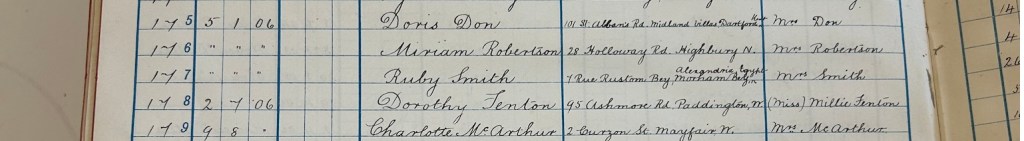 175 5 1 06 Doris Don 101 St. Albans Rd. Midland Villas Dartford, Kent Mrs Don
176 " " " Miriam Robertson 28 Holloway Rd. Highbury N. Mrs Robertson
177 " " " Ruby Smith 7 Rue Rustom Bey, Alexandria Egypt Mrs Smith
178 2 7 06 Dorothy Fenton 95 Ashmore Rd. Paddington, W. (Miss) Millie Fenton
179 9 8 . Charlotte McArthur 2 Curzon St. Mayfair W. Mrs McArthur
14
4
26